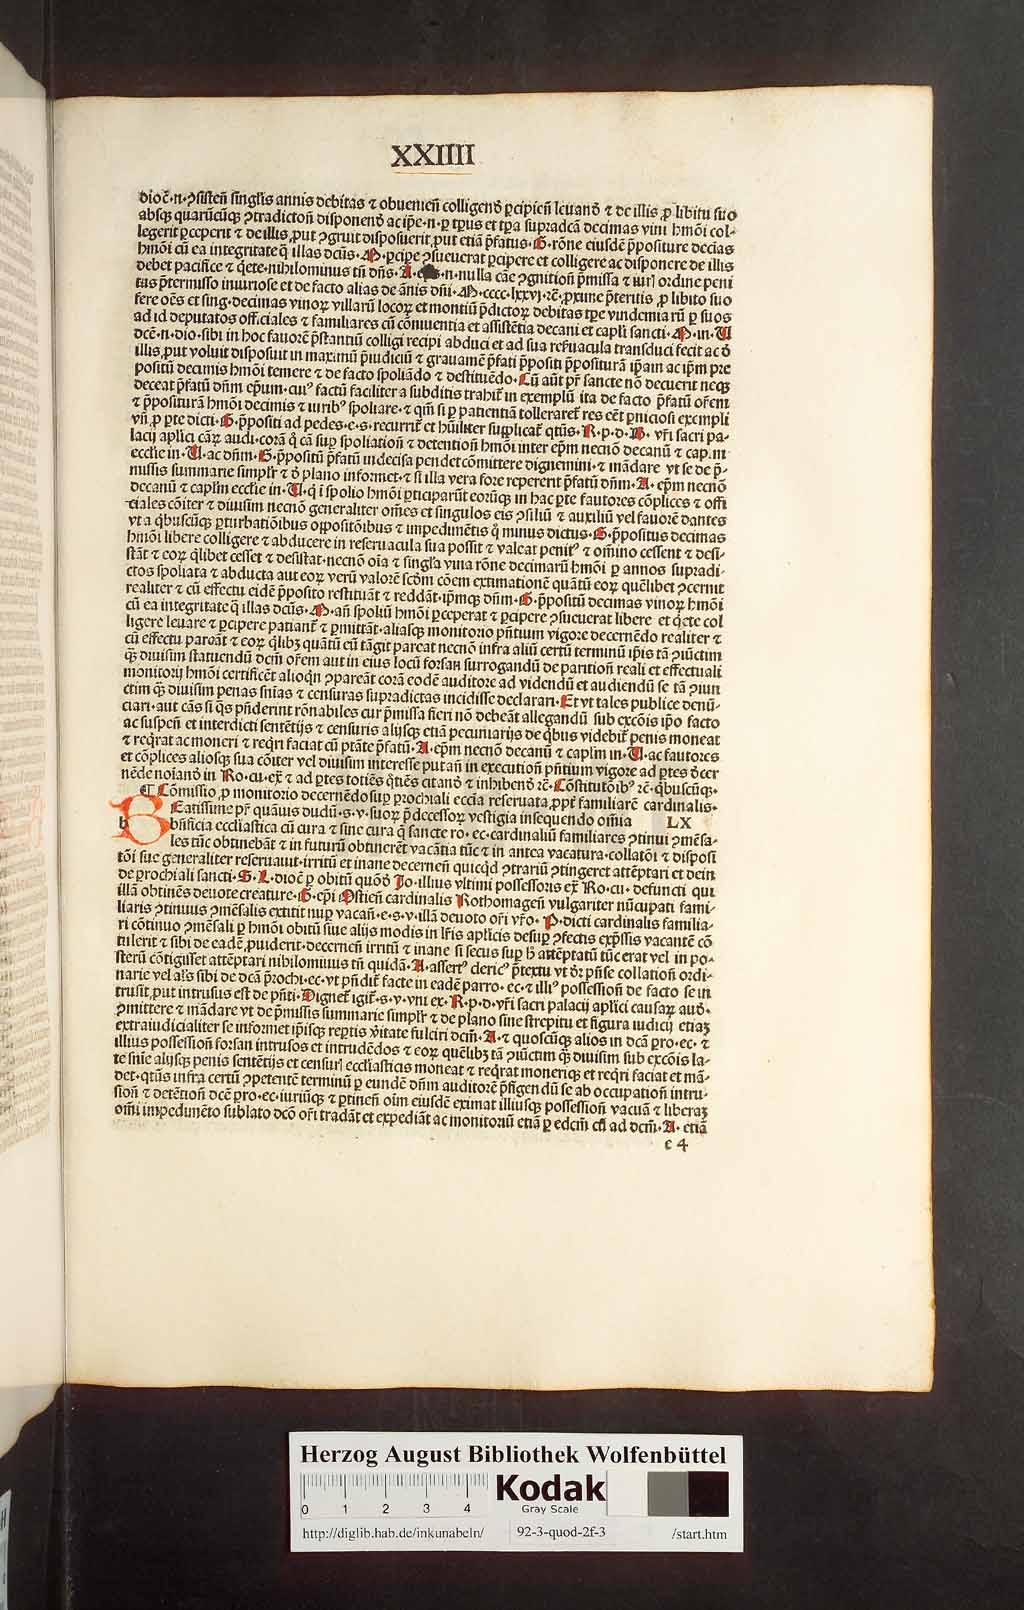 XXIIII
dioc̄·n·ꝯsisten̄ singl̓is annis debitas ⁊ obuenien̄ colligend̓ ꝑcipien̄ leuand̓ ⁊ de illis ꝓ libitu suo
absqꝫ quarūcūqꝫ ꝯtradicton̄ disponend̓ ac ip̄e·n·ꝑ tp̄us et tp̄a supradcā decimas vini hmōi col-
legerit ꝑceperit ⁊ de illis ꝓut ꝯgruit disposuerit ꝓut etiā p̄fatus·G·rōne eiusdē p̄positure decias
hmōi cū ea integritate q̄ illas dcūs·M·ꝑcipe ꝯsueuerat ꝑcipere et colligere ac disponere de illis
debet pacifice ⁊ q̓ete·nihilominus tn̄ dn̄s·A·n·nulla cāe ꝯgnition̄ p̄missa ⁊ iuris ordine peni
tus p̄termisso iniuriose et de facto alias de ānis dn̄i·M·cccc·lxxvj·rc̄·ꝓxime p̄teritis ꝓ libito suo
fere oēs et sing·decimas vinoꝝ villarū locoꝝ et montiū p̄dictoꝝ debitas tp̄e vindemiarū ꝑ suos
ad id deputatos officiales ⁊ familiares cū cōniuentia et assistētia decani et capl̓i sancti·M·in·U
dcē·n·dio·sibi in hoc fauorē p̄stantiū colligi recipi abduci et ad sua reseruacula transduci fecit ac d̓
illis ꝓut voluit disposuit in maximū p̄iudiciū ⁊ grauamē p̄fati p̄positi p̄positurā ip̄am ac ip̄m pre
positū decimis hmōi temere ⁊ de facto spoliādo ⁊ destituēdo·Cū aūt pr̄ sancte nō decuerit neqꝫ
deceat p̄fatū dn̄m ep̄um·cuiꝰ factū faciliter a subditis trahit̄ in exemplū ita de facto p̄fatū or̄em
⁊ p̄posituram hmōi decimis ⁊ iuribꝰ spoliare·⁊ qm̄ si ꝑ patientiā tolleraret̄ res eēt ꝑniciosi exempli
vn̄ ꝓ pte dicti·G·p̄positi ad pedes·e·s·recurrit̄ et hūiliter supplicat̄ qtūs·R·p·d·B·vr̄i sacri pa-
lacij apl̓ici cāꝝ audi·corā q̓ cā suꝑ spoliation̄ ⁊ detention̄ hmōi inter ep̄m necnō decanū ⁊ cap.m
eccl̓ie in·U·ac dn̄m·G·p̄positū p̄fatū indecisa pendet cōmittere dignemini·⁊ mādare vt se de p̄-
missis summarie simpl̓r ⁊ d̓ plano informet·⁊ si illa vera fore repererit p̄fatū dn̄m·A·ep̄m necnō
decanū ⁊ capl̓m eccl̓ie in·U·q̓ ī spolio hmōi ꝑticiparūt eorūqꝫ in hac ꝑte fautores cōplices ⁊ offi
ciales cōiter ⁊ diuisim necnō generaliter om̄es et singulos eis ꝯsiliū ⁊ auxiliū vel fauorē dantes
vt a q̓buscūqꝫ ꝑturbatiōibus oppositōibus ⁊ impedimētis q̓ minus dictus·G·p̄positus decimas
hmōi libere colligere ⁊ abducere in reseruacula sua possit ⁊ valeat penitꝰ ⁊ om̄ino cessent ⁊ desi-
stāt ⁊ eoꝝ q̓libet cesset ⁊ desistat·necnō oīa ⁊ singl̓a vina rōne decimarū hmōi ꝑ annos supradi-
ctos spoliata ⁊ abducta aut eoꝝ verū valorē scd̓m cōem extimationē quātū eoꝝ quēlibet ꝯcernit
realiter ⁊ cū effectu eidē p̄posito restituāt ⁊ reddāt·ip̄mqꝫ dn̄m·G·p̄positū decimas vinoꝝ hmōi
cū ea integritate q̄ illas dcūs·M·an̄ spoliū hmōi ꝑceperat ⁊ ꝑcipere ꝯsueuerat libere et q̓ete col
ligere leuare ⁊ ꝑcipere patiant̄ ⁊ ꝑmittāt·aliasqꝫ monitorio pn̄tium vigore decernēdo realiter ⁊
cū effectu pareāt ⁊ eoꝝ q̓libꝫ quātū eū tāgit pareat necnō infra aliū certū terminū ip̄is tā ꝯiūctim
qꝫ̄ diuisim statuendū dcm̄ or̄em aut in eius locū forsan surrogandū de parition̄ reali et effectuali
monitorij hmōi certificēt alioqn̄ ꝯpareāt corā eodē auditore ad videndū et audiendū se tā ꝯiun
ctim qꝫ̄ diuisim penas sn̄ias ⁊ censuras supradictas incidisse declarari·Et vt tales publice denū-
ciari·aut cās si qs pn̄derint rōnabiles cur p̄missa fieri nō debeāt allegandū sub excōis ip̄o facto
ac suspen̄ et interdicti sentētijs ⁊ censuris alijsqꝫ etiā pecuniarijs de q̓bus videbit̄ penis moneat
⁊ reqrat ac moneri ⁊ reqri faciat cū ptāte p̄fatū·A·ep̄m necnō decanū ⁊ capl̓m in·U·ac fautores
et cōplices aliosqꝫ sua cōiter vel diuisim interesse putan̄ in execution̄ pn̄tium vigore ad ꝑtes d̓cer
nēde noiand̓ in Ro·cu·ex̄ ⁊ ad ꝑtes totiēs q̓tiēs citand̓ ⁊ inhibend̓ rc̄·Cōstitutōibꝰ rc̄·qbuscūqꝫ·
¶ Cōmissio ꝓ monitorio decernēdo suꝑ ꝑrochiali eccīa reseruata ꝓpt̄ familiarē cardinalis·
Beatissime pr̄ quāuis dudū·s·v·suoꝝ p̄decessoꝝ vestigia insequendo om̄ia LX
b bn̄ficia eccl̓iastica cū cura ⁊ sine cura q̓ sancte ro·ec·cardinaliū familiares ꝯtinui ꝯmēsa-
les tūc obtinebāt ⁊ in futurū obtinerēt vacātia tūc ⁊ in antea vacatura·collatōi ⁊ disposi
tōi sue generaliter reseruauit·irritū et inane decernen̄ quicqd̓ ꝯtrariū ꝯtingeret attēptari et dein
de ꝑrochiali sancti·S·L·dioc̄ ꝑ obitū quōd̓ Jo·illius vltimi possessoris ex̄ Ro·cu·defuncti qui
illā obtinēs deuote creature·G·ep̄i Ostien̄ cardinalis Rothomagen̄ vulgariter nūcupati fami-
liaris ꝯtinuus ꝯmēsalis extitit nuꝑ vacan̄·e·s·v·illā deuoto or̄i vr̄o·P·dicti cardinalis familia-
ri cōtinuo ꝯmēsali ꝑ hmōi obitū siue alijs modis in lr̄is apl̓icis desuꝑ ꝯfectis exp̄ssis vacantē cō
tulerit ⁊ sibi de eadē ꝓuiderit·decernen̄ irritū ⁊ inane si secus suꝑ h̓ attēptatū tūc erat vel in po-
sterū cōtigisset attēptari nihilominus tn̄ quidā·A·assertꝰ clericꝰ p̄textu vt d̓r pn̄se collation̄ ordi-
narie vel al̓s sibi de dcā ꝑrochi·ec·vt pn̄dit̄ facte in eadē parro·ec·⁊ illiꝰ possession̄ de facto se in
trusit ꝓut intrusus est de pn̄ti·Dignet̄ igit̄·s·v·vni ex·R·p·d·vr̄i sacri palacij apl̓ici causaꝝ aud̓·
ꝯmittere ⁊ mādare vt de p̄missis summarie simpl̓r ⁊ de plano sine strepitu et figura iudicij etiaꝫ
extraiudicialiter se informet ip̄isqꝫ reptis v̓itate fulciri dcm̄·A·⁊ quoscūqꝫ alios in dcā ꝑro·ec·⁊
illius possession̄ forsan intrusos et intrudēdos ⁊ eoꝝ quēlibꝫ tā ꝯiūctim qꝫ̄ diuisim sub excōis la-
te sn̄ie alijsqꝫ penis sentētijs et censuris eccl̓iasticis moneat ⁊ reqrat moneriqꝫ et reqri faciat et mā-
det·qtūs infra certū ꝯpetentē terminū ꝑ eundē dn̄m auditorē p̄figendū se ab occupation̄ intru-
sion̄ ⁊ detētion̄ dcē ꝑro·ec·iuriūqꝫ ⁊ ꝑtinen̄ oīm eiusdē eximat illiusqꝫ possession̄ vacuā ⁊ liberaꝫ
om̄i impedimēto sublato dcō or̄i tradāt et expediāt ac monitoriū etiā ꝑ edcm̄ cū ad dcm̄·A·etiā
c 4
Herzog August Bibliothek Wolfenbüttel
0 1 2 3 4
Kodak
Gray Scale
http://diglib.hab.de/inkunabeln/ 92-3-quod-2f-3 /start.htm